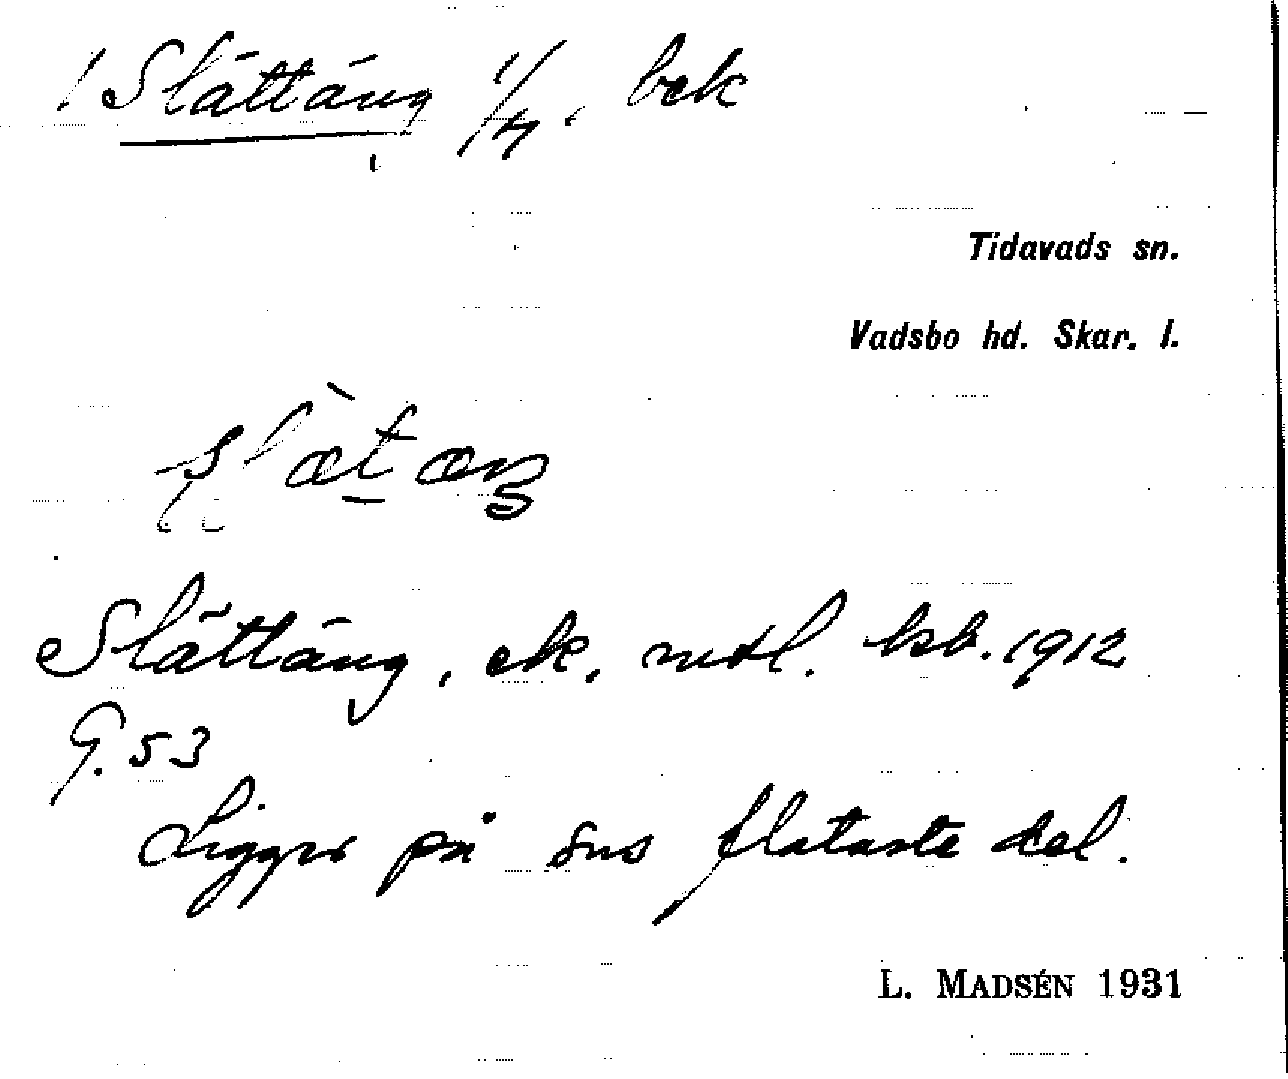 Slättäng 1/4, bek
Tidavads sn.
Vadsbo hd. Skar. l.
Slättäng, ek. mtl. ksb. 1912
G. 53
Ligger på sns flataste del.
L. MADSÉN 1931